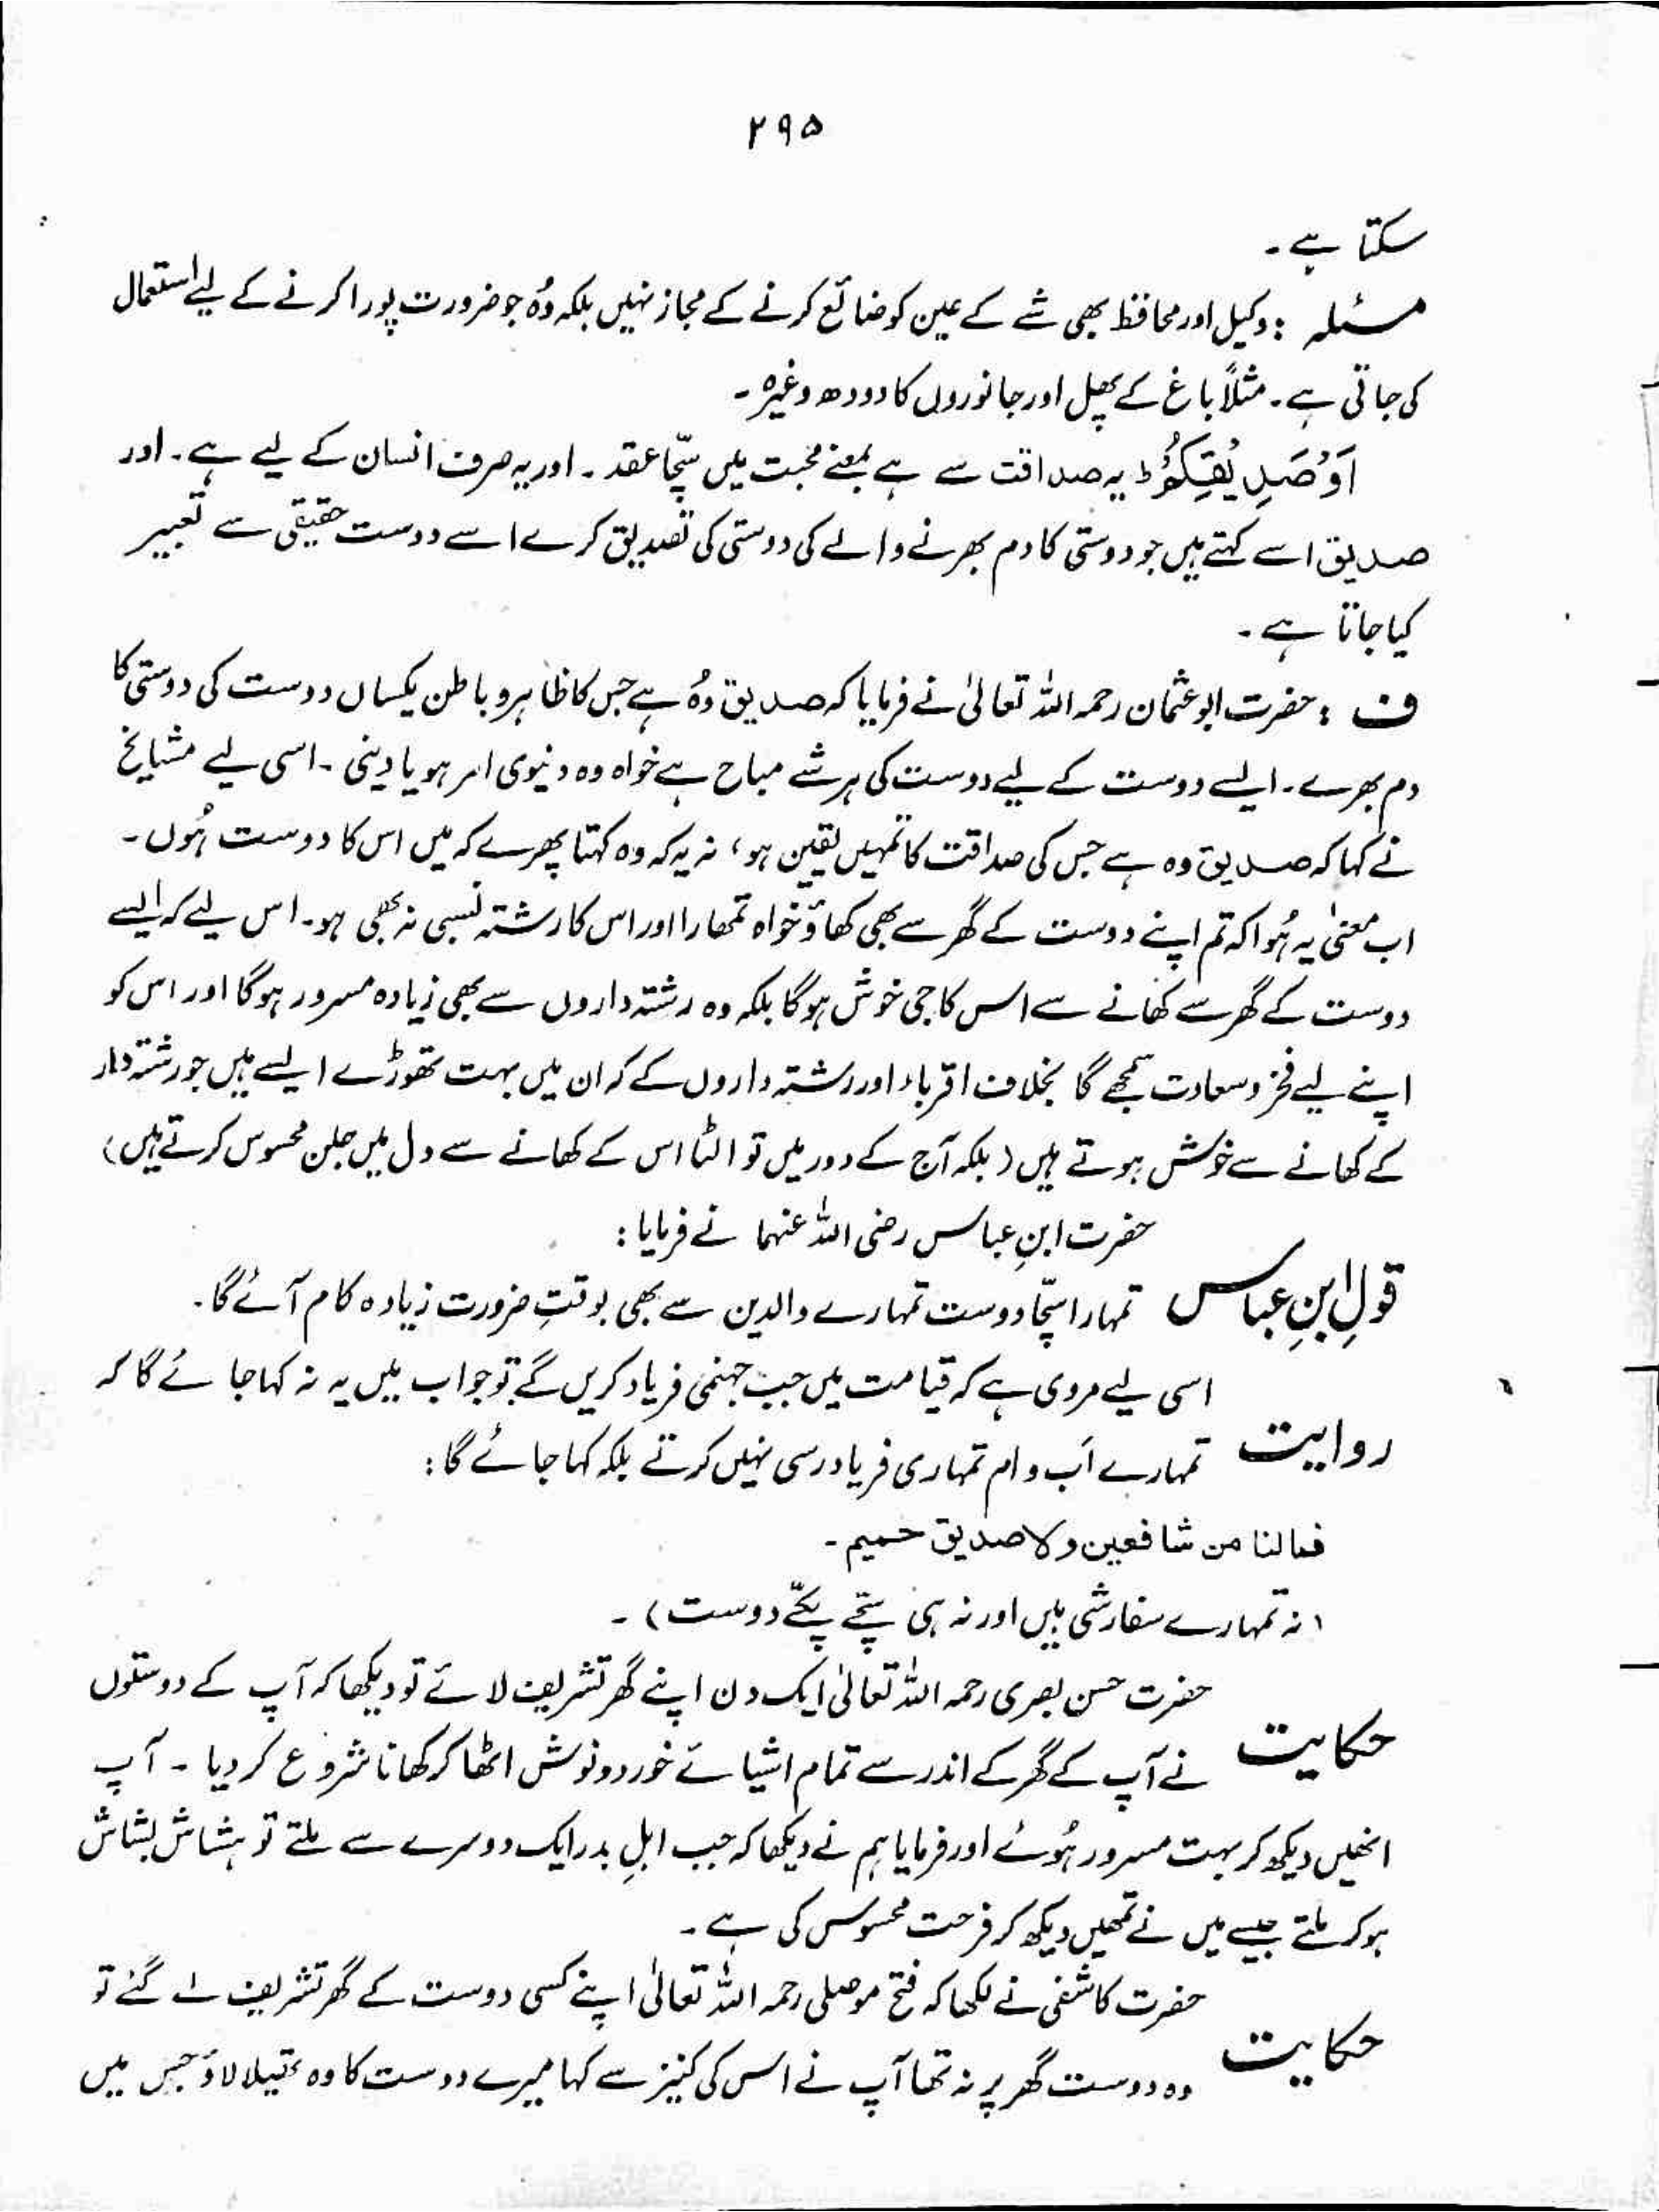 ۲۹۵
سکتا ہے۔
مسئلہ : وکیل اور محافظ بھی شے کے عین کو ضائع کرنے کے مجاز نہیں بلکہ وُہ جو ضرورت پورا کرنے کے لیے استعمال
کی جاتی ہے۔ مثلاً باغ کے پھل اور جانوروں کا دودھ وغیرہ۔
اَوْ صَدِیْقِکُمْ ط یہ صداقت سے ہے بمعنے محبت میں سچّا عقد۔ اور یہ صرف انسان کے لیے ہے۔ اور
صدیق اسے کہتے ہیں جو دوستی کا دم بھرنے والے کی دوستی کی تصدیق کرے اسے دوست حقیقی سے تعبیر
کیا جاتا ہے۔
ف : حضرت ابوعثمان رحمہ اللہ تعالیٰ نے فرمایا کہ صدیق وُہ ہے جس کا ظاہر و باطن یکساں دوست کی دوستی کا
دم بھرے۔ ایسے دوست کے لیے دوست کی ہر شے مباح ہے خواہ وہ دنیوی امر ہو یا دینی۔ اسی لیے مشایخ
نے کہا کہ صدیق وہ ہے جس کی صداقت کا تمہیں یقین ہو، نہ یہ کہ وہ کہتا پھرے کہ میں اس کا دوست ہُوں۔
اب معنیٰ یہ ہُوا کہ تم اپنے دوست کے گھر سے بھی کھاؤ خواہ تمھارا اور اس کا رشتہ نسبی نہ بھی ہو۔ اس لیے کہ ایسے
دوست کے گھر سے کھانے سے اس کا جی خوش ہوگا بلکہ وہ رشتہ داروں سے بھی زیادہ مسرور ہوگا اور اس کو
اپنے لیے فخر و سعادت سمجھے گا بخلاف اقرباء اور رشتہ داروں کے کہ ان میں بہت تھوڑے ایسے ہیں جو رشتہ دار
کے کھانے سے خوش ہوتے ہیں (بلکہ آج کے دور میں تو الٹا اس کے کھانے سے دل میں جلن محسوس کرتے ہیں)
حضرت ابنِ عباس رضی اللہ عنہما نے فرمایا :
قولِ ابنِ عباس تمہارا سچّا دوست تمہارے والدین سے بھی بوقتِ ضرورت زیادہ کام آئے گا۔
اسی لیے مروی ہے کہ قیامت میں جب جہنمی فریاد کریں گے تو جواب میں یہ نہ کہا جائے گا کہ
روایت تمہارے اَب و ام تمہاری فریاد رسی نہیں کرتے بلکہ کہا جائے گا :
فمالنا من شافعین ولا صدیق حمیم۔
(نہ تمہارے سفارشی ہیں اور نہ ہی سچّے پکّے دوست)۔
حضرت حسن بصری رحمہ اللہ تعالیٰ ایک دن اپنے گھر تشریف لائے تو دیکھا کہ آپ کے دوستوں
حکایت نے آپ کے گھر کے اندر سے تمام اشیائے خورد و نوش اٹھا کر کھانا شروع کر دیا۔ آپ
انھیں دیکھ کر بہت مسرور ہُوئے اور فرمایا ہم نے دیکھا کہ جب اہلِ بدر ایک دوسرے سے ملتے تو ہشاش بشاش
ہو کر ملتے جیسے میں نے تمھیں دیکھ کر فرحت محسوس کی ہے۔
حضرت کاشفی نے لکھا کہ فتح موصلی رحمہ اللہ تعالیٰ اپنے کسی دوست کے گھر تشریف لے گئے تو
حکایت وہ دوست گھر پر نہ تھا آپ نے اس کی کنیز سے کہا میرے دوست کا وہ تھیلا لاؤ جس میں